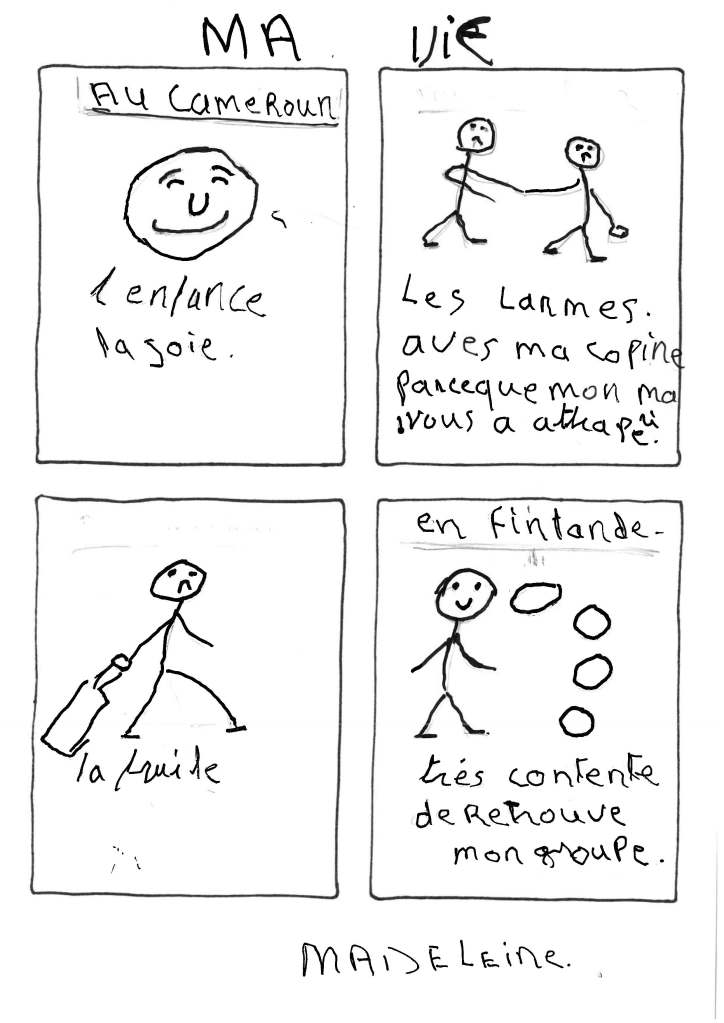 MA VIE
Au Cameroun
l'enfance
la joie.
Les Larmes.
aves ma copine
parceque mon ma
ri
nous a attrapé.
la fruite
en Finlande-
très contente
de Retrouve
mon groupe.
MADELEINE.